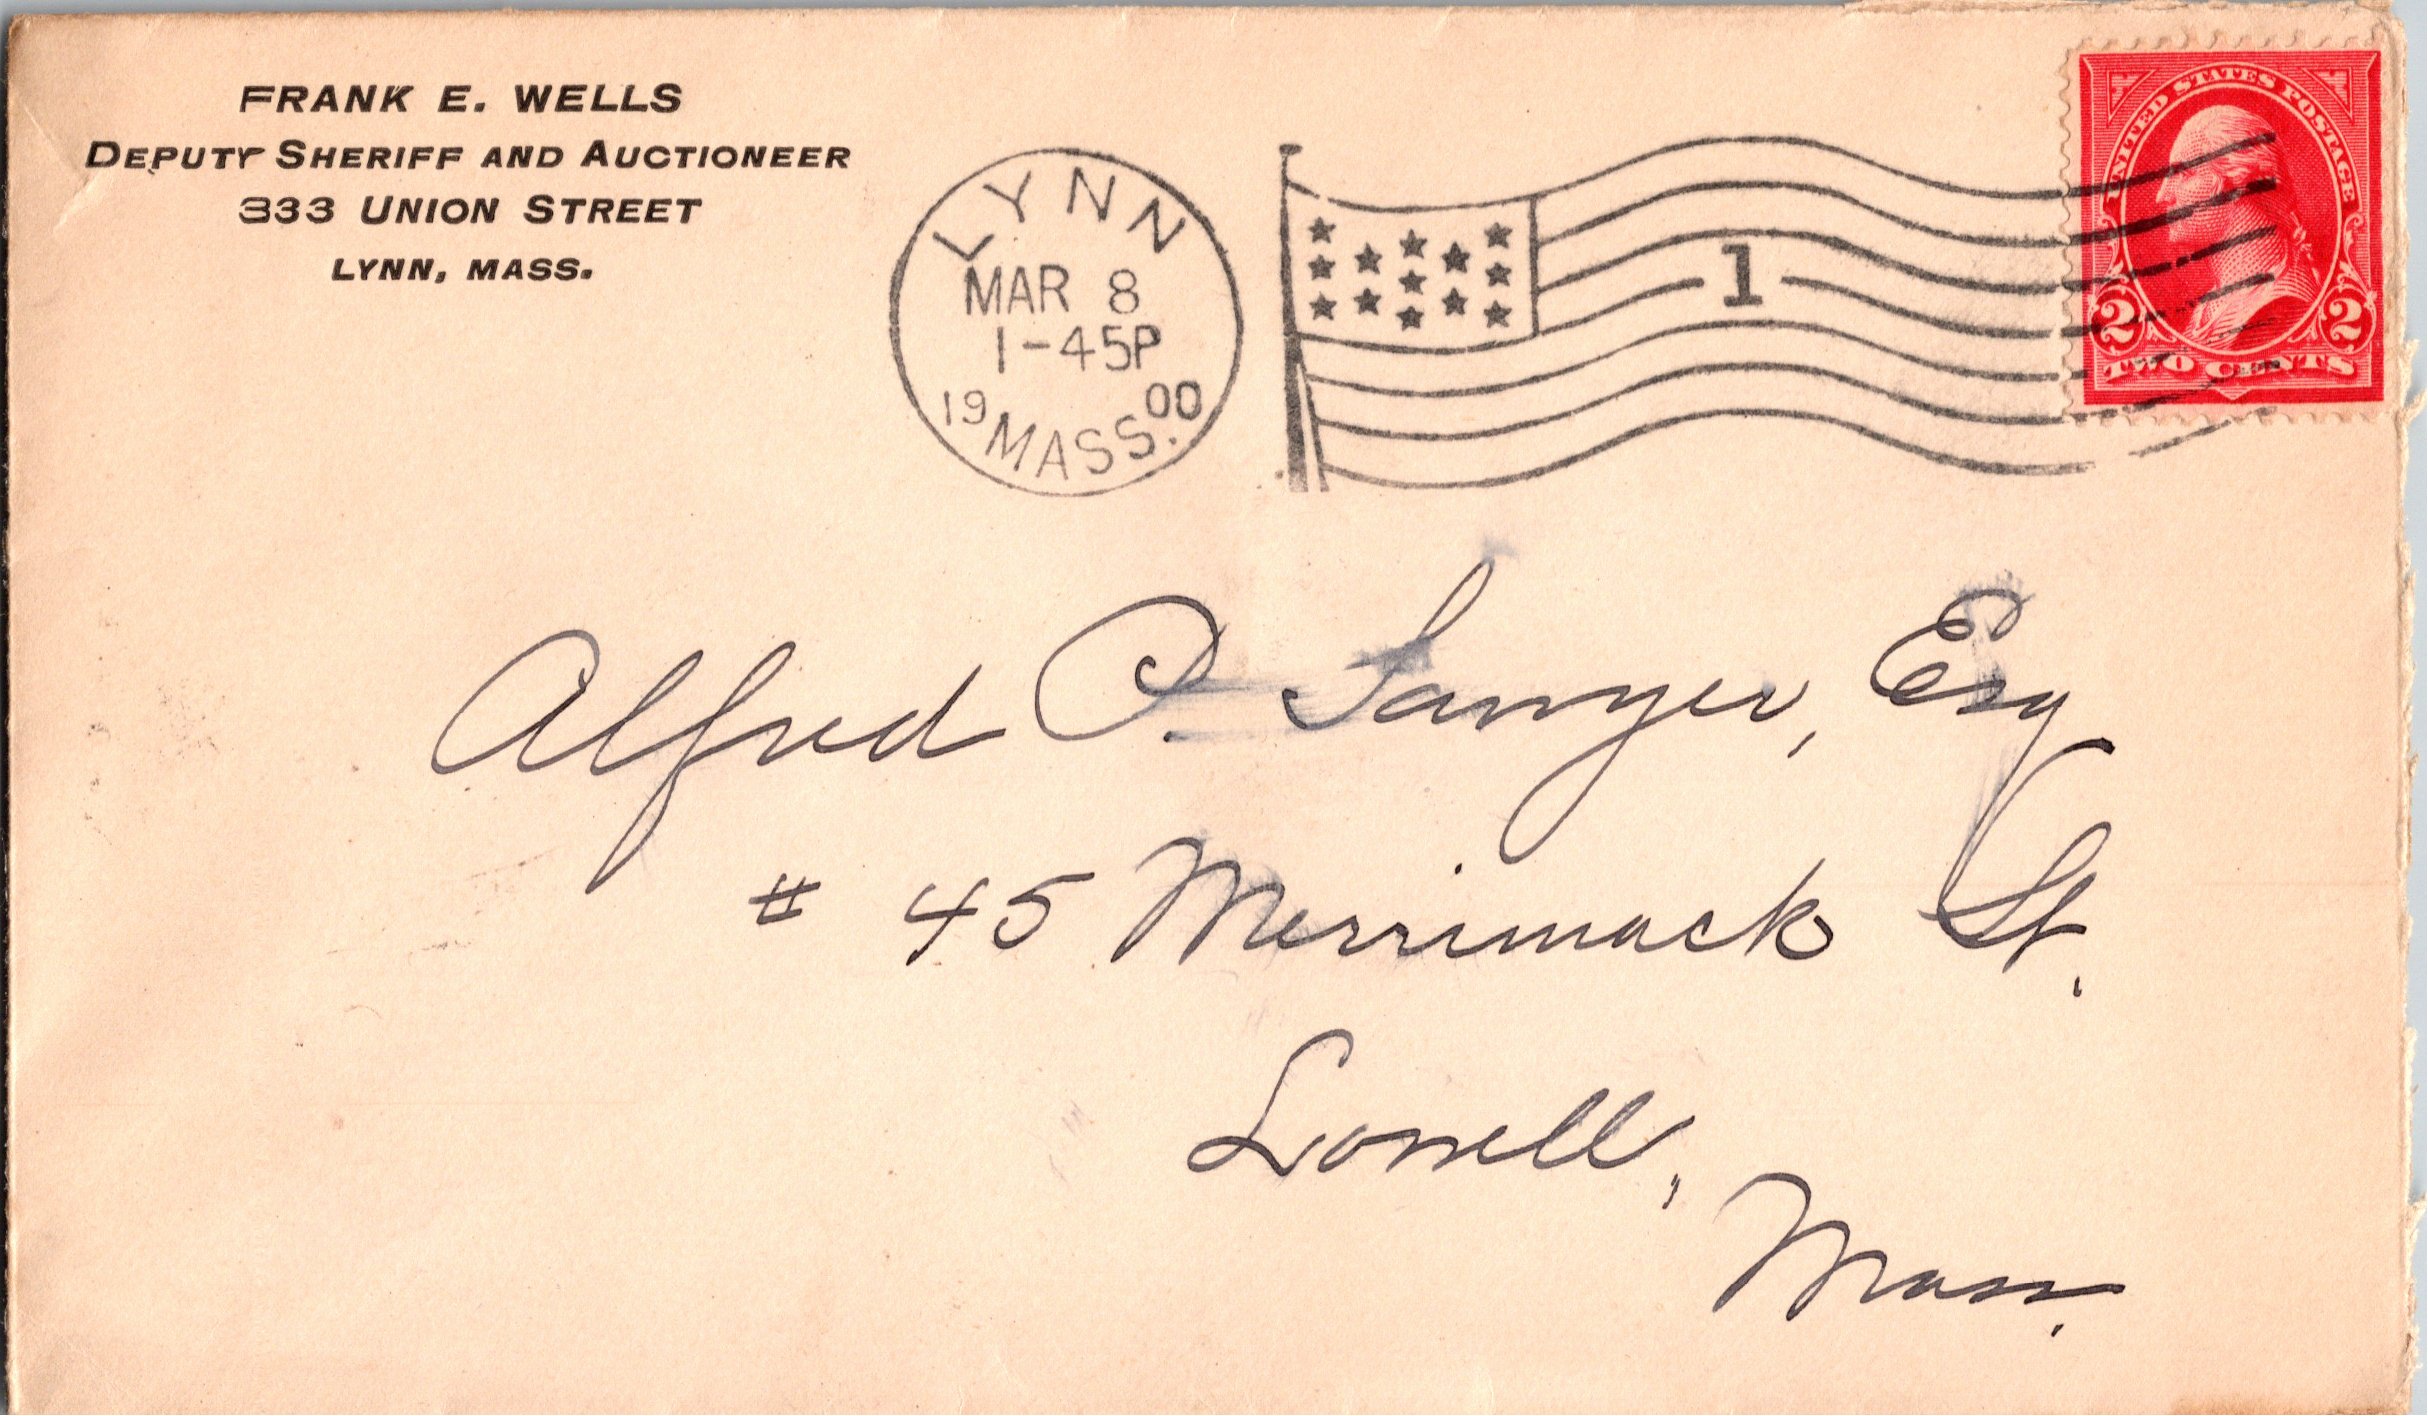 FRANK E. WELLS
DEPUTY SHERIFF AND AUCTIONEER
333 UNION STREET
LYNN, MASS.
LYNN
MAR 8
1-45P
19 00
MASS.
1
UNITED STATES POSTAGE
2 2
TWO CENTS
Alfred P. Sawyer, Esq
# 45 Merrimack St.
Lowell,
Mass.